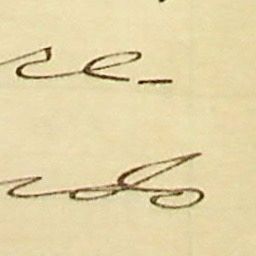 re-
ndo